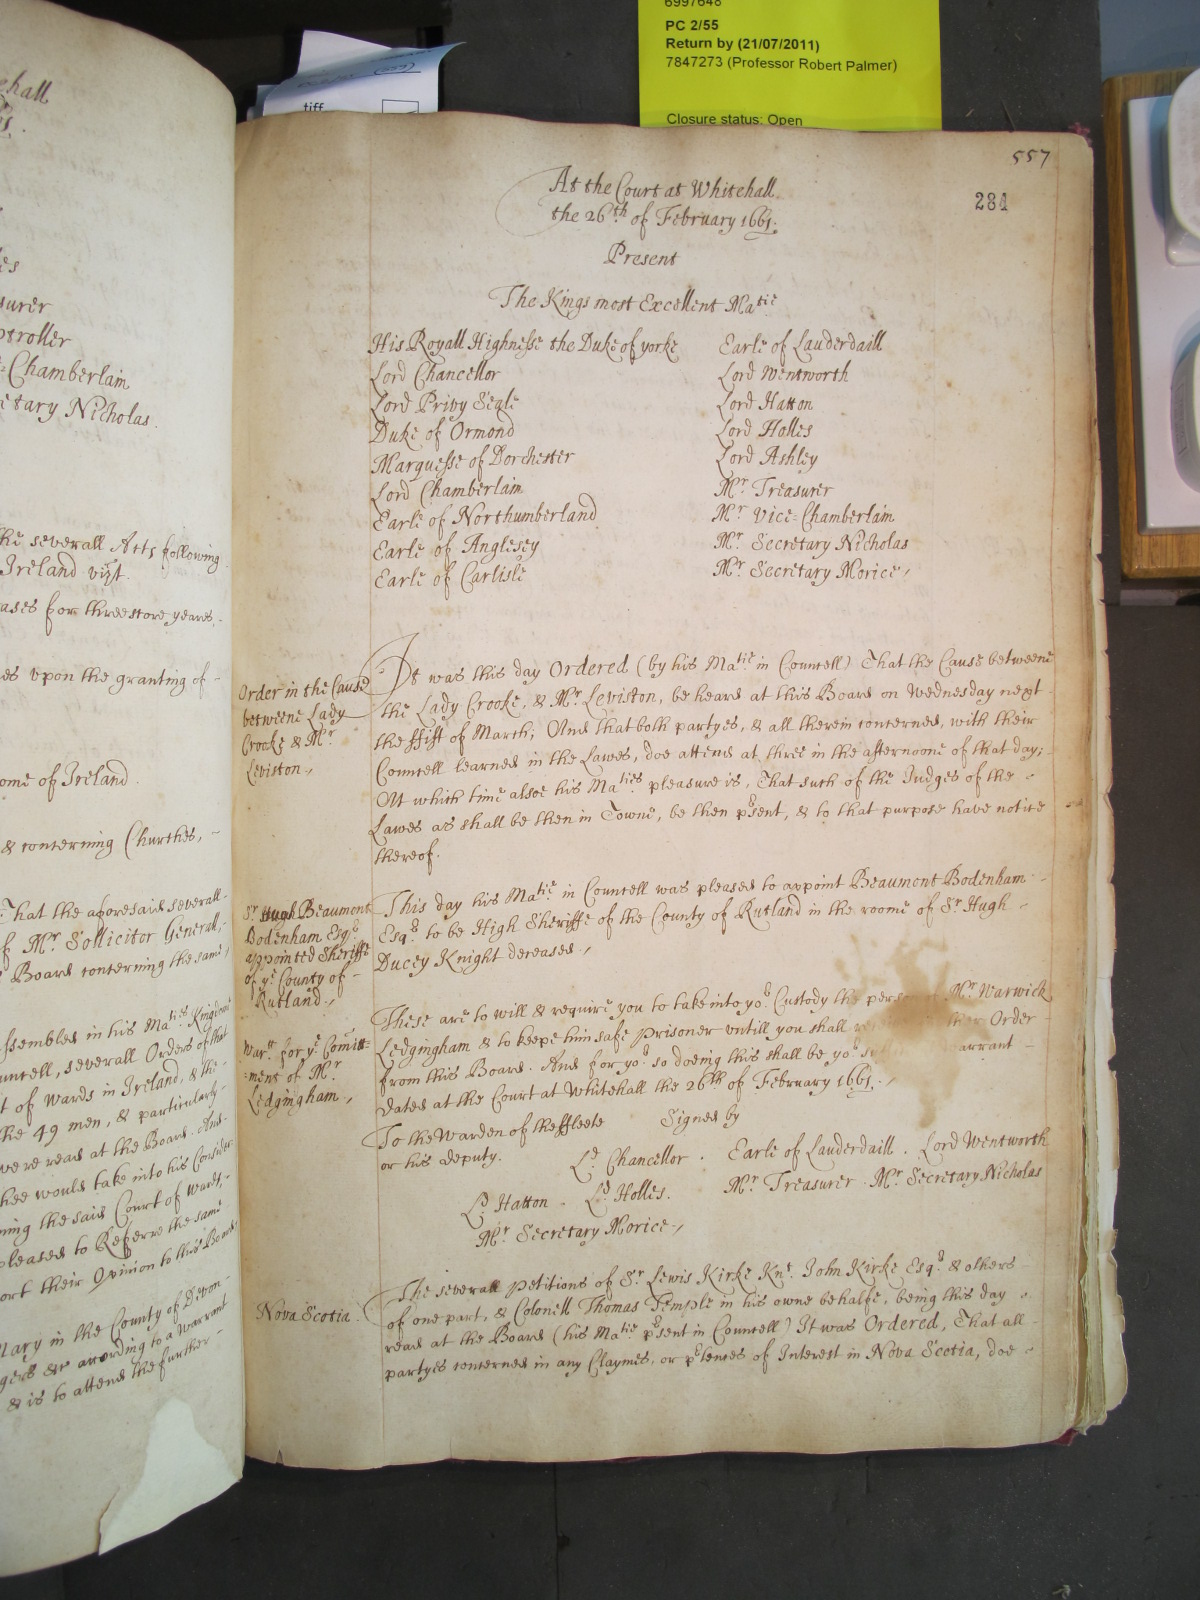 6997648
PC 2/55
Return by (21/07/2011)
7847273 (Professor Robert Palmer)
Closure status: Open
tiff
ehall
es
surer
ptroller
e=Chamberlain
etary Nicholas.
severall Acts following
Ireland vizt.
ases for threescore years,
es upon the granting of -
ome of Ireland.
& concerning Churches, -
That the aforesaid severall
Mr Sollicitor Generall,
Board concerning the same,
ssembled in his Maties Kingdome
untell, severall Orders of that
t of Wards in Ireland, & the
the 49 men, & particularly
were read at the Board. And
hee would take into his Consider
ning the said Court of Wards,
pleased to Referre the same
ort their Opinion to this Board
tary in the County of Devon-
gers &c according to a Warrant
& is to attend the further -
557
284
At the Court at Whitehall
the 26th of February 1661.
Present
The Kings most Excellent Matie
His Royall Highnesse the Duke of yorke
Lord Chancellor
Lord Privy Seale
Duke of Ormond
Marquesse of Dorchester
Lord Chamberlain
Earle of Northumberland
Earle of Anglesey
Earle of Carlisle
Earle of Lauderdaill
Lord Wentworth
Lord Hatton
Lord Holles
Lord Ashley
Mr Treasurer
Mr Vice=Chamberlain
Mr Secretary Nicholas
Mr Secretary Morice,
Order in the Cause
betweene Lady
Crooke & Mr
Leviston,
It was this day Ordered (by his Matie in Councell) That the Cause betweene
the Lady Crooke, & Mr Leviston, be heard at this Board on Wednesday next
the ffift of March, And that both partyes, & all therein concerned, with their
Councell learned in the Lawes, doe attend at three in the afternoone of that day;
At which time alsoe his Maties pleasure is, That such of the Judges of the
Lawes as shall be then in Towne, be then psent, & to that purpose have notice
thereof.
Sr Hugh Beaumont
Bodenham Esqr
appointed Sheriffe
of ye County of
Rutland,
This day his Matie in Councell was pleased to appoint Beaumont Bodenham
Esqr to be High Sheriffe of the County of Rutland in the roome of Sr Hugh
Ducey Knight deceased,
Warrt for ye Comitt=
=ment of Mr
Ledgingham,
These are to will & require you to take into yor Custody the person of Mr Warwick
Ledgingham & to keepe him safe prisoner untill you shall further Order
from this Board. And for yor so doeing this shall be yor Warrant
Dated at the Court at Whitehall the 26th of February 1661,
To the Warden of the ffleete
or his deputy.
Signed by
Ld Chancellor. Earle of Lauderdaill. Lord Wentworth
Ld Hatton. Ld Holles. Mr Treasurer. Mr Secretary Nicholas
Mr Secretary Morice,
Nova Scotia.
The severall Petitions of Sr Lewis Kirke Knt. John Kirke Esqr & others
of one part, & Colonell Thomas Temple in his owne behalfe, being this day
read at the Board (his Matie psent in Councell) It was Ordered, That all
partyes concerned in any Claymes, or ptences of Interest in Nova Scotia, doe